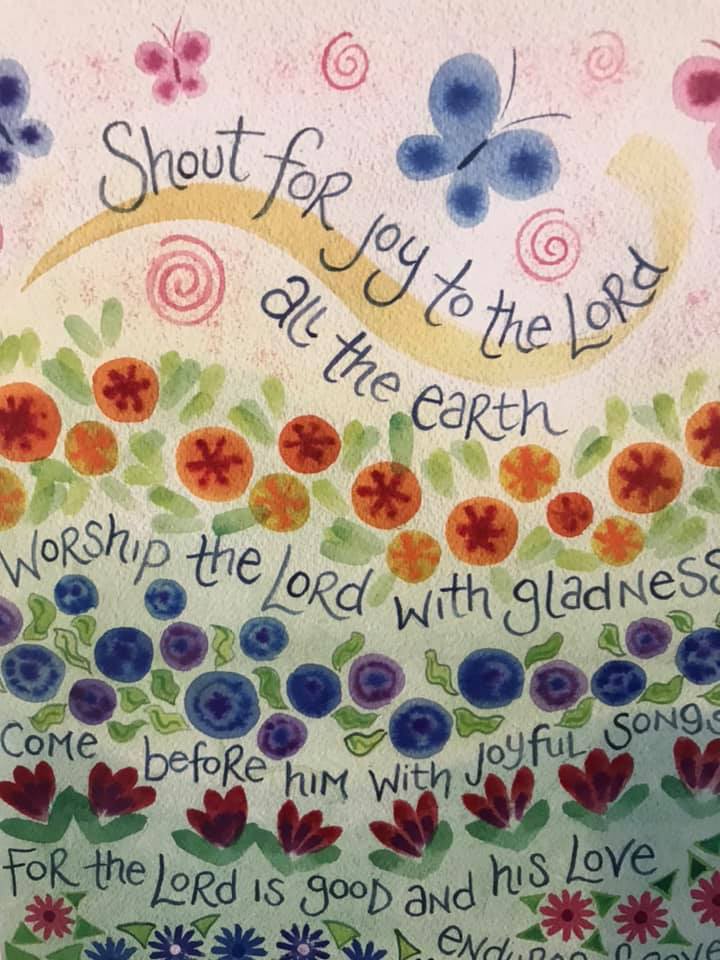 Shout for joy to the Lord
all the earth
Worship the Lord with gladness
Come before him with joyful songs
For the Lord is good and his Love